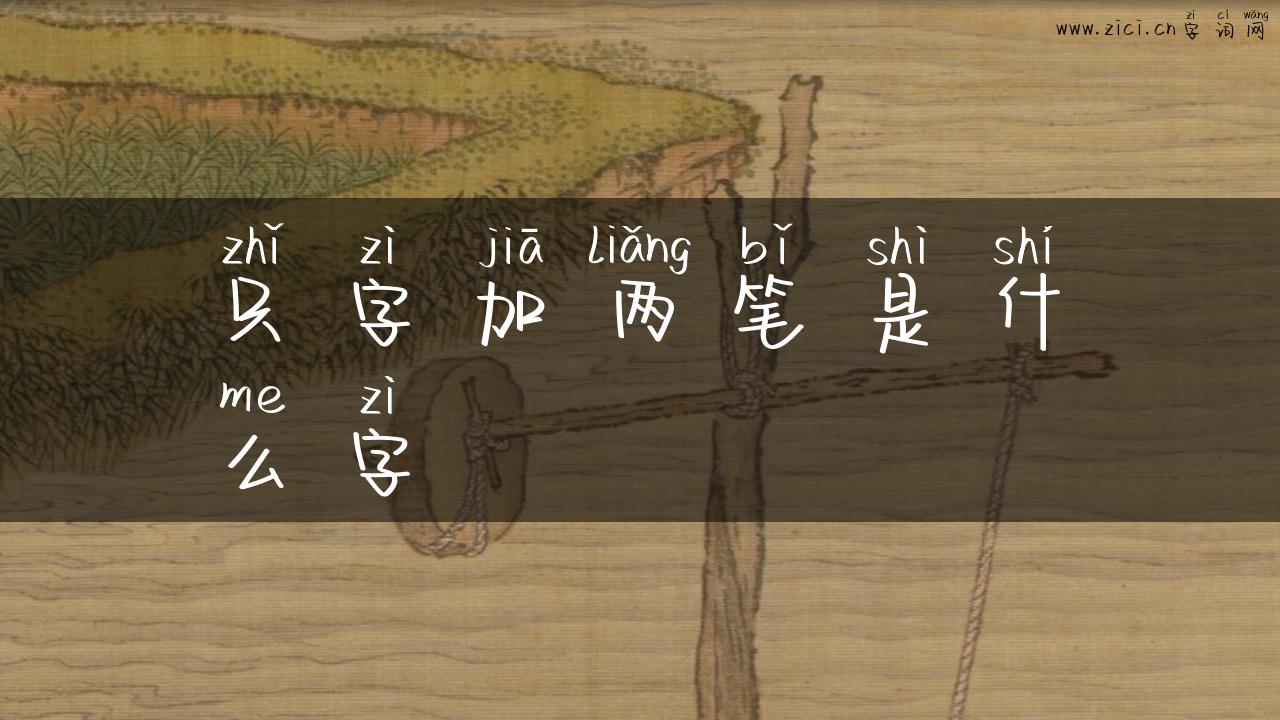 zì cí wǎng
www.zici.cn 字 词 网
zhǐ zì jiā liǎng bǐ shì shí
只 字 加 两 笔 是 什
me zì
么 字